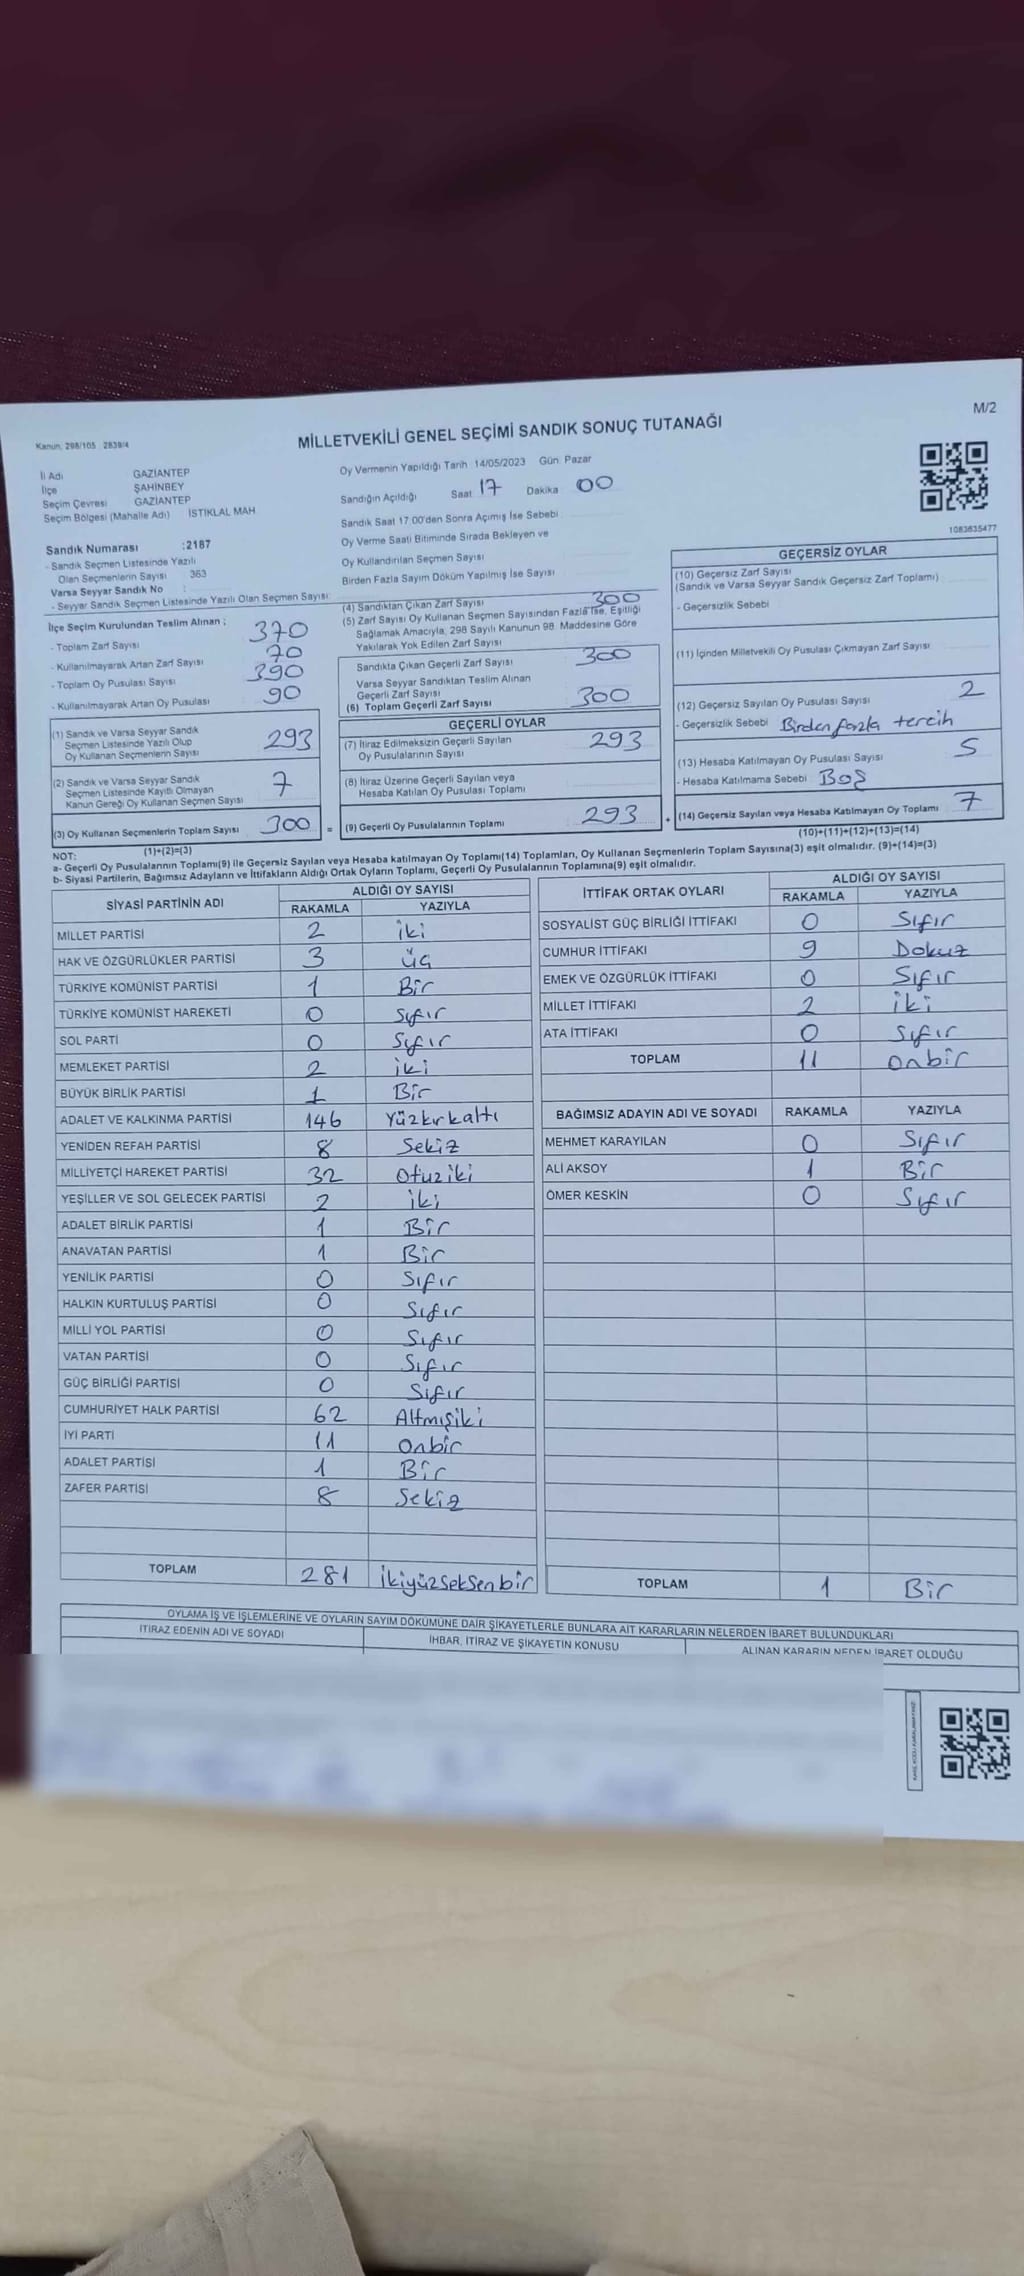 M/2
Kanun: 298/105 2839/4
MİLLETVEKİLİ GENEL SEÇİMİ SANDIK SONUÇ TUTANAĞI
İl Adı GAZİANTEP
İlçe ŞAHİNBEY
Seçim Çevresi GAZİANTEP
Seçim Bölgesi (Mahalle Adı) İSTİKLAL MAH
Sandık Numarası :2187
- Sandık Seçmen Listesinde Yazılı
Olan Seçmenlerin Sayısı 363
Varsa Seyyar Sandık No :
- Seyyar Sandık Seçmen Listesinde Yazılı Olan Seçmen Sayısı:
Oy Vermenin Yapıldığı Tarih 14/05/2023 Gün: Pazar
Sandığın Açıldığı Saat 17 Dakika 00
Sandık Saat 17.00'den Sonra Açımış İse Sebebi
Oy Verme Saati Bitiminde Sırada Bekleyen ve
Oy Kullandırılan Seçmen Sayısı
Birden Fazla Sayım Döküm Yapılmış İse Sayısı
1083635477
İlçe Seçim Kurulundan Teslim Alınan ;
- Toplam Zarf Sayısı 370
- Kullanılmayarak Artan Zarf Sayısı 70
- Toplam Oy Pusulası Sayısı 390
- Kullanılmayarak Artan Oy Pusulası 90
(1) Sandık ve Varsa Seyyar Sandık
Seçmen Listesinde Yazılı Olup
Oy Kullanan Seçmenlerin Sayısı 293
(2) Sandık ve Varsa Seyyar Sandık
Seçmen Listesinde Kayıtlı Olmayan
Kanun Gereği Oy Kullanan Seçmen Sayısı 7
(3) Oy Kullanan Seçmenlerin Toplam Sayısı 300 =
(1)+(2)=(3)
(4) Sandıktan Çıkan Zarf Sayısı 300
(5) Zarf Sayısı Oy Kullanan Seçmen Sayısından Fazla İse, Eşitliği
Sağlamak Amacıyla, 298 Sayılı Kanunun 98. Maddesine Göre
Yakılarak Yok Edilen Zarf Sayısı
Sandıkta Çıkan Geçerli Zarf Sayısı 300
Varsa Seyyar Sandıktan Teslim Alınan
Geçerli Zarf Sayısı
(6) Toplam Geçerli Zarf Sayısı 300
GEÇERLİ OYLAR
(7) İtiraz Edilmeksizin Geçerli Sayılan
Oy Pusulalarının Sayısı 293
(8) İtiraz Üzerine Geçerli Sayılan veya
Hesaba Katılan Oy Pusulası Toplamı
(9) Geçerli Oy Pusulalarının Toplamı 293 +
GEÇERSİZ OYLAR
(10) Geçersiz Zarf Sayısı
(Sandık ve Varsa Seyyar Sandık Geçersiz Zarf Toplamı)
- Geçersizlik Sebebi
(11) İçinden Milletvekili Oy Pusulası Çıkmayan Zarf Sayısı
(12) Geçersiz Sayılan Oy Pusulası Sayısı 2
- Geçersizlik Sebebi Birden fazla tercih
(13) Hesaba Katılmayan Oy Pusulası Sayısı 5
- Hesaba Katılmama Sebebi Boş
(14) Geçersiz Sayılan veya Hesaba Katılmayan Oy Toplamı 7
(10)+(11)+(12)+(13)=(14)
NOT:
a- Geçerli Oy Pusulalarının Toplamı(9) ile Geçersiz Sayılan veya Hesaba katılmayan Oy Toplamı(14) Toplamları, Oy Kullanan Seçmenlerin Toplam Sayısına(3) eşit olmalıdır. (9)+(14)=(3)
b- Siyasi Partilerin, Bağımsız Adayların ve İttifakların Aldığı Ortak Oyların Toplamı, Geçerli Oy Pusulalarının Toplamına(9) eşit olmalıdır.
SİYASİ PARTİNİN ADI ALDIĞI OY SAYISI
RAKAMLA YAZIYLA
MİLLET PARTİSİ 2 iki
HAK VE ÖZGÜRLÜKLER PARTİSİ 3 üç
TÜRKİYE KOMÜNİST PARTİSİ 1 Bir
TÜRKİYE KOMÜNİST HAREKETİ 0 Sıfır
SOL PARTİ 0 Sıfır
MEMLEKET PARTİSİ 2 iki
BÜYÜK BİRLİK PARTİSİ 1 Bir
ADALET VE KALKINMA PARTİSİ 146 Yüzkırkaltı
YENİDEN REFAH PARTİSİ 8 Sekiz
MİLLİYETÇİ HAREKET PARTİSİ 32 Otuziki
YEŞİLLER VE SOL GELECEK PARTİSİ 2 iki
ADALET BİRLİK PARTİSİ 1 Bir
ANAVATAN PARTİSİ 1 Bir
YENİLİK PARTİSİ 0 Sıfır
HALKIN KURTULUŞ PARTİSİ 0 Sıfır
MİLLİ YOL PARTİSİ 0 Sıfır
VATAN PARTİSİ 0 Sıfır
GÜÇ BİRLİĞİ PARTİSİ 0 Sıfır
CUMHURİYET HALK PARTİSİ 62 Altmışiki
İYİ PARTİ 11 onbir
ADALET PARTİSİ 1 Bir
ZAFER PARTİSİ 8 Sekiz
TOPLAM 281 ikiyüzseksenbir
İTTİFAK ORTAK OYLARI ALDIĞI OY SAYISI
RAKAMLA YAZIYLA
SOSYALİST GÜÇ BİRLİĞİ İTTİFAKI 0 Sıfır
CUMHUR İTTİFAKI 9 Dokuz
EMEK VE ÖZGÜRLÜK İTTİFAKI 0 Sıfır
MİLLET İTTİFAKI 2 iki
ATA İTTİFAKI 0 Sıfır
TOPLAM 11 onbir
BAĞIMSIZ ADAYIN ADI VE SOYADI RAKAMLA YAZIYLA
MEHMET KARAYILAN 0 Sıfır
ALİ AKSOY 1 Bir
ÖMER KESKİN 0 Sıfır
TOPLAM 1 Bir
OYLAMA İŞ VE İŞLEMLERİNE VE OYLARIN SAYIM DÖKÜMÜNE DAİR ŞİKAYETLERLE BUNLARA AİT KARARLARIN NELERDEN İBARET BULUNDUKLARI
İTİRAZ EDENİN ADI VE SOYADI İHBAR, İTİRAZ VE ŞİKAYETİN KONUSU ALINAN KARARIN NEDEN İBARET OLDUĞU